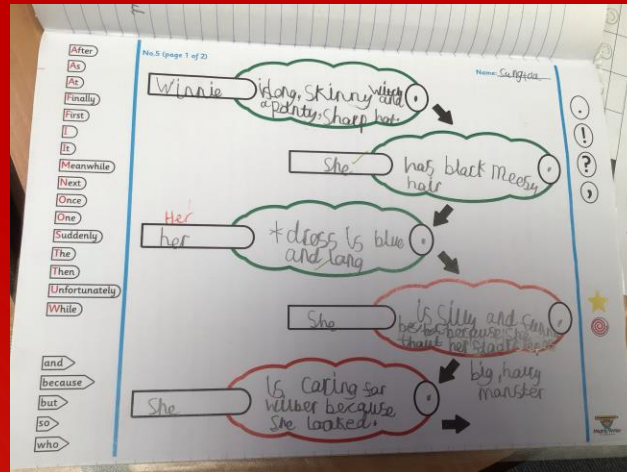 After
As
At
Finally
First
I
It
Meanwhile
Next
Once
One
Suddenly
The
Then
Unfortunately
While
and
because
but
so
who
No.5 (page 1 of 2)
Name:
Winnie
is long, skinny witch and
a pointy, sharp hat.
She
has black messy
hair
Her
her
* dress is blue
and long
She
is silly and
because she
big, hairy
manster
She
is caring far
wilber because
she looked.
. ! ? ,